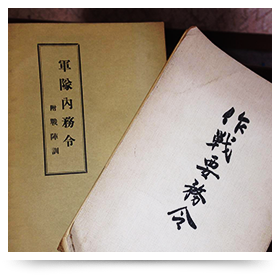 軍隊內務令
附戰陣訓
作戦要務令